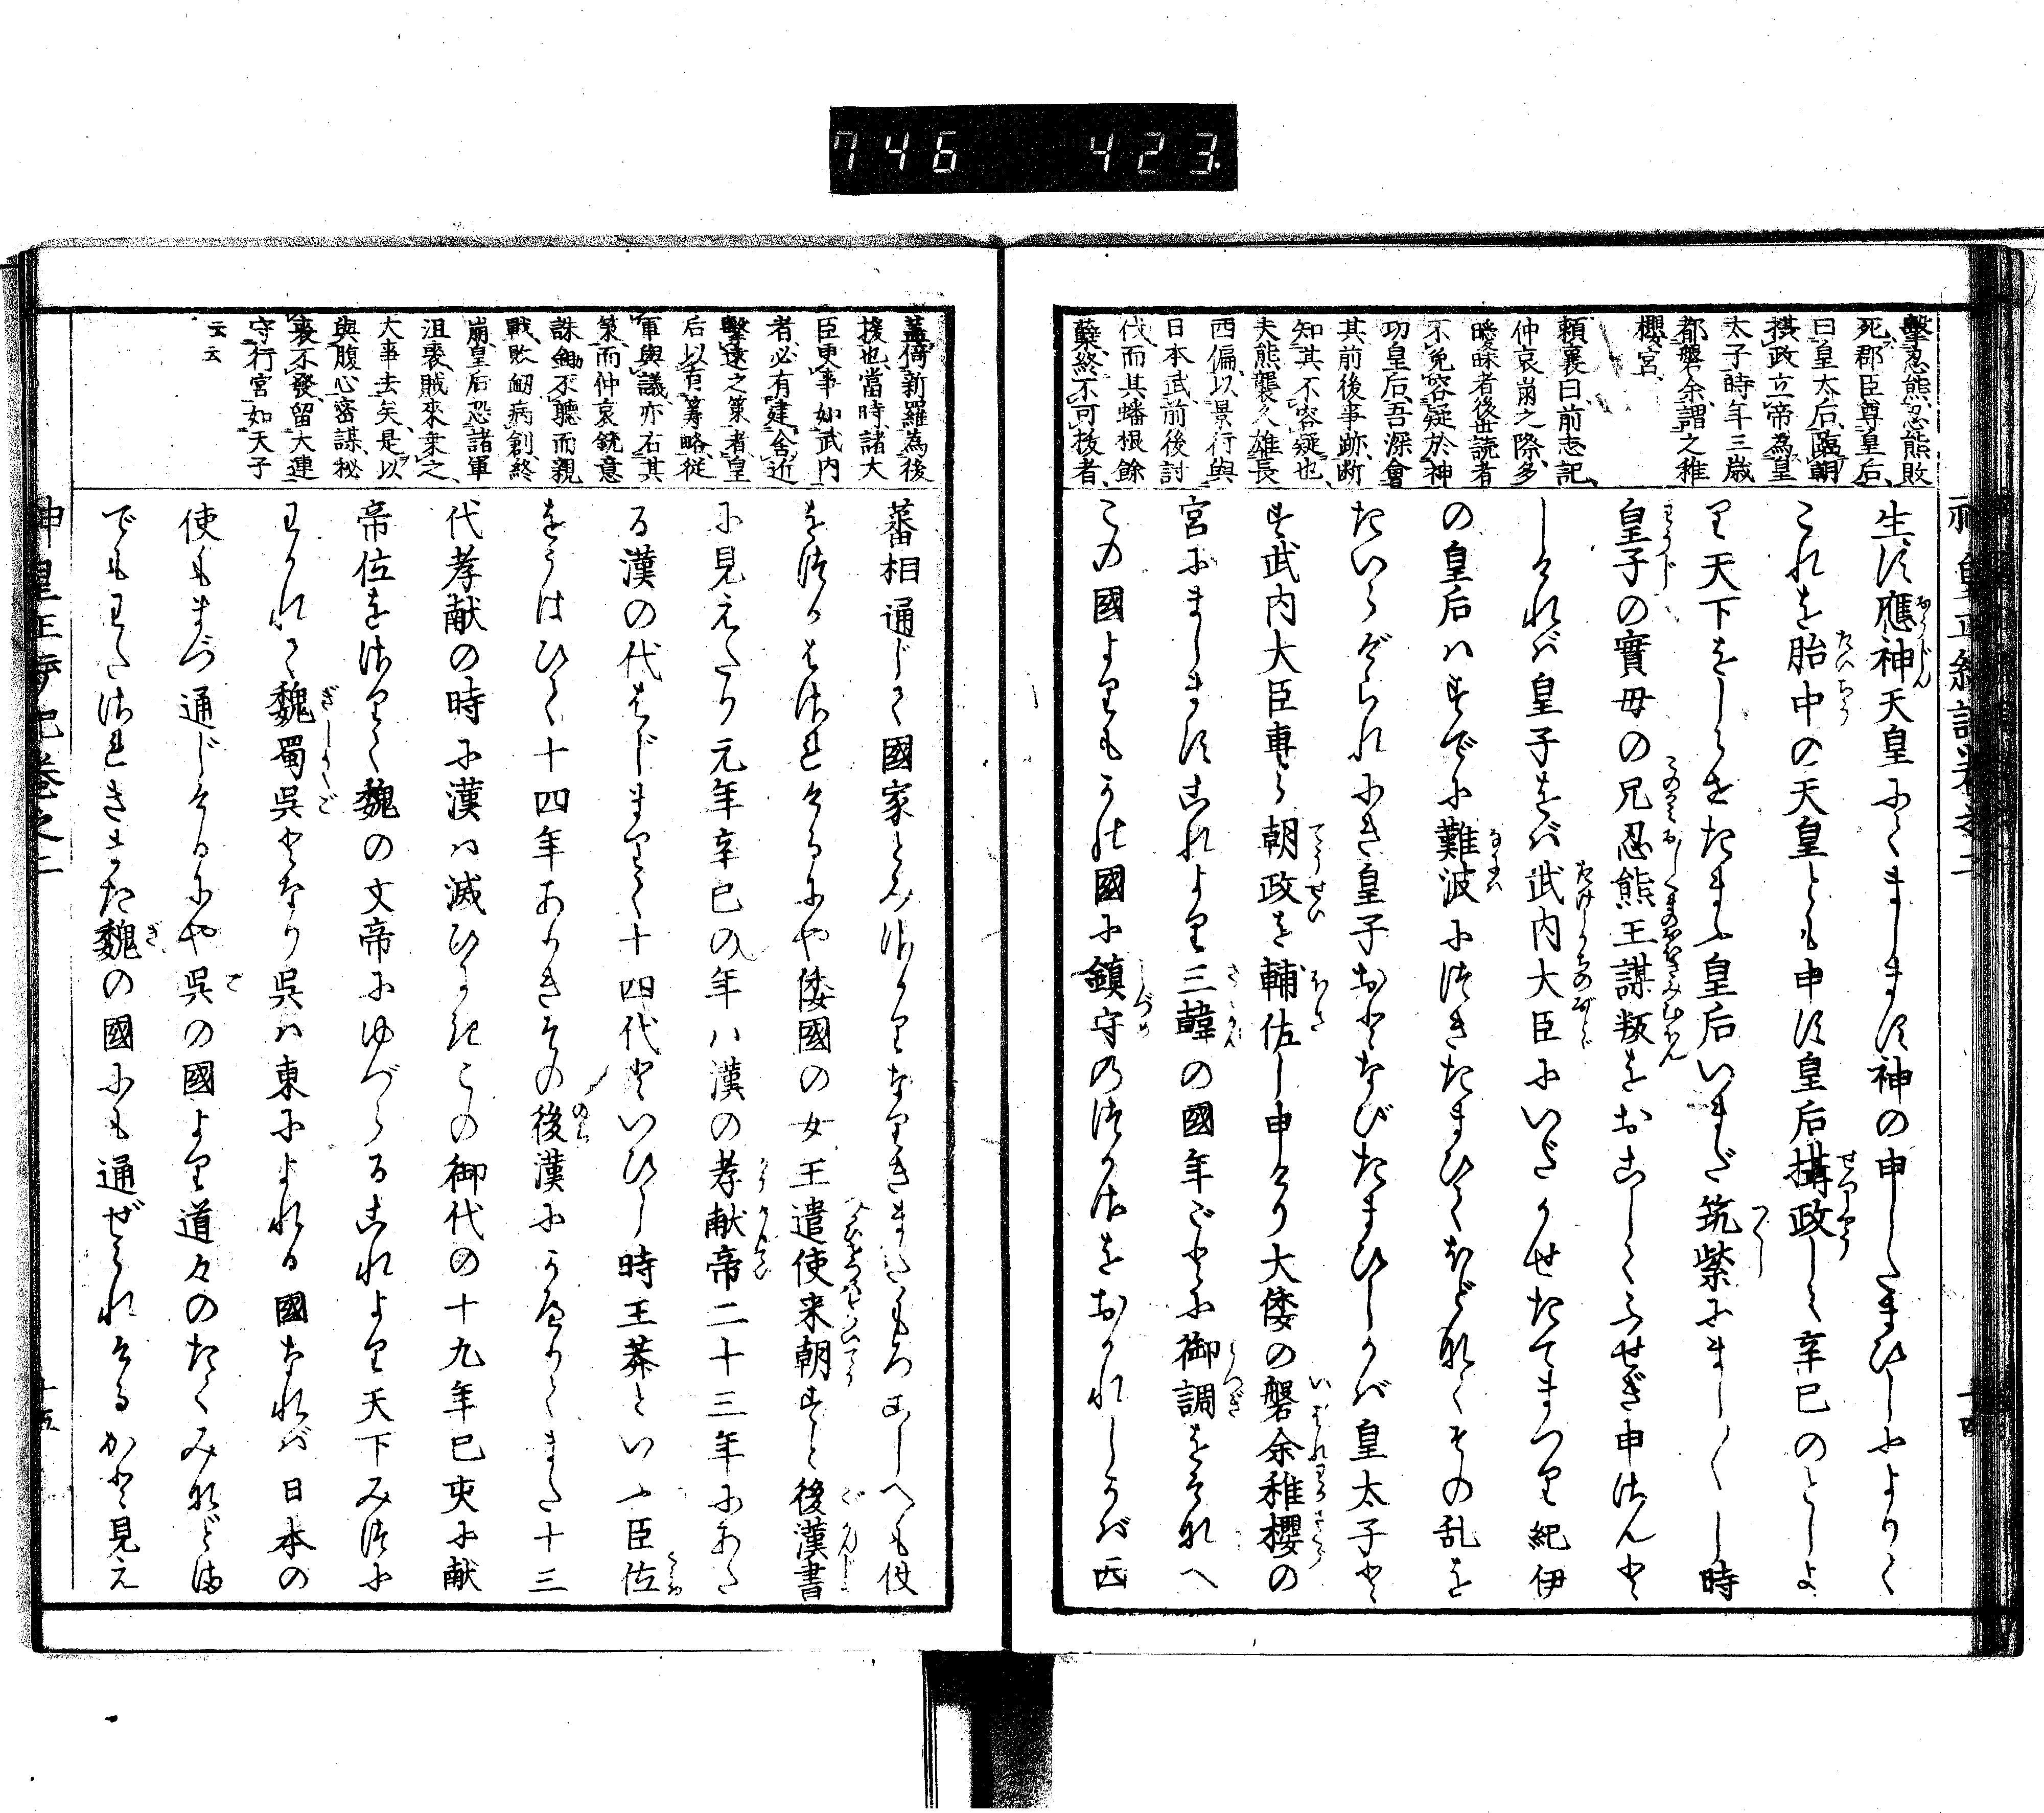 746 423.
擊忍熊忍熊敗
死郡臣尊皇后
曰皇太后臨朝
攝政立帝為皇
太子時年三歲
都磐余謂之稚
櫻宮
頼襄曰前志記
仲哀崩之際多
曖昧者後世読者
不免容疑於神
功皇后吾深會
其前後事跡断
知其不容疑也
夫熊襲久雄長
西偏以景行與
日本武前後討
伐而其蟠根餘
蘖終不可拔者
生す應神天皇にてまします神の申したまひしによりて
これを胎中の天皇とも申す皇后攝政して辛巳のとしよ
り天下をしらせたまふ皇后いまだ筑紫にまし〳〵し時
皇子の實母の兄忍熊王謀叛をおこしてふせぎ申さんと
しければ皇子をば武内大臣にいだかせたてまつり紀伊
の皇后はすでに難波につきたまひてほどなくその乱を
たいらげられにき皇子おとなびたまひしかば皇太子と
す武内大臣専ら朝政を輔佐し申けり大倭の磐余稚櫻の
宮にましますこれより三韓の國年ごとに御調をそなへ
この國よりもかの國に鎮守のつかさをおかれしかば西
神皇正統記巻之二
十四
蓋倚新羅為後
援也當時諸大
臣更事如武内
者必有建舍近
擊遠之策者皇
后以有籌略従
軍與議亦右其
策而仲哀銳意
誅鋤不聽而親
戰敗衄病創終
崩皇后恐諸軍
沮喪賊來乗之
大事去矣是以
與腹心密謀秘
喪不發留大連
守行宮如天子
云云
蕃相通じて國家とみさかりなりきまたもろこしへも使
をつかはされけるにや倭國の女王遣使来朝すと後漢書
に見えたり元年辛巳の年は漢の孝献帝二十三年にあた
る漢の代はじまりて十四代といひし時王莽といふ臣位
をうばひて十四年ありきその後漢にかへりてまた十三
代孝献の時に漢は滅ひにきこの御代の十九年己亥に献
帝位をさりて魏の文帝にゆづらるこれより天下みつに
わかれて魏蜀呉となり呉は東によれる國なれば日本の
使もまづ通じけるにや呉の國より道々のたくみなどま
でもわたされきまた魏の國にも通ぜられけるかと見え
神皇正統記巻之二
十五